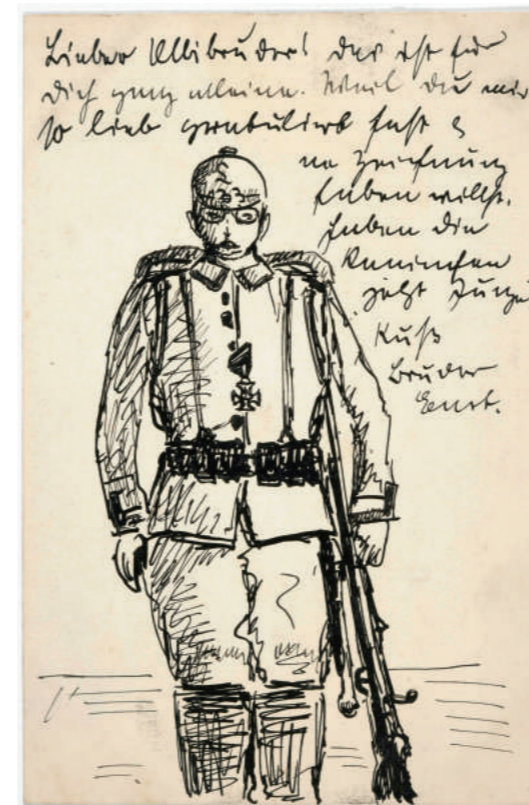 Lieber Ullibruder! das ist für
dich ganz alleine. Weil du mir
so lieb gratuliert hast &
ne Zeichnung
haben willst.
haben die
Kaninchen
jetzt Junge
Kuß
Bruder
Ernst.
233